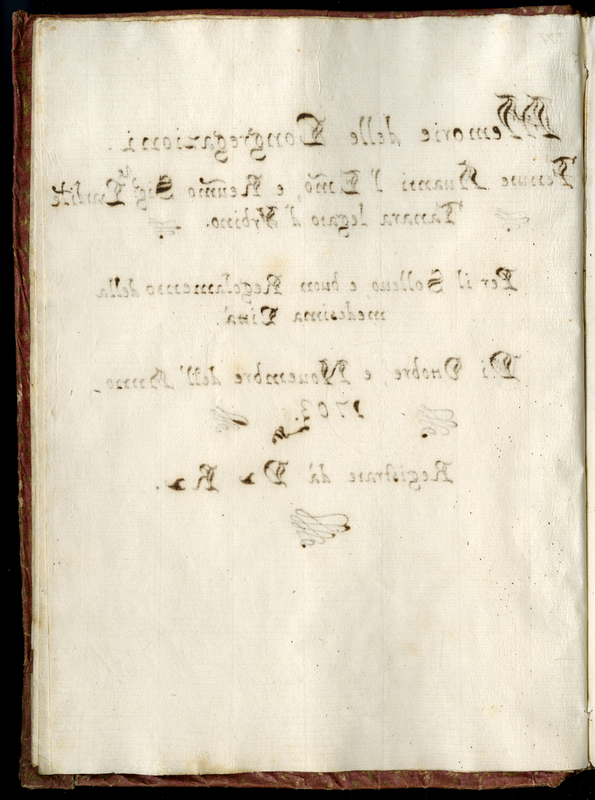 Memorie delle Congregazioni.
Tenute Auanti l'Em̃o, e Reũmo Sig.re Cardile
Tanara legato d'Vrbino.
Per il Solleuo, e buon Regolamento della
medesima Città.
Di Ottobre, e Nouembre dell'Anno
1703.
Registrate dà D R.